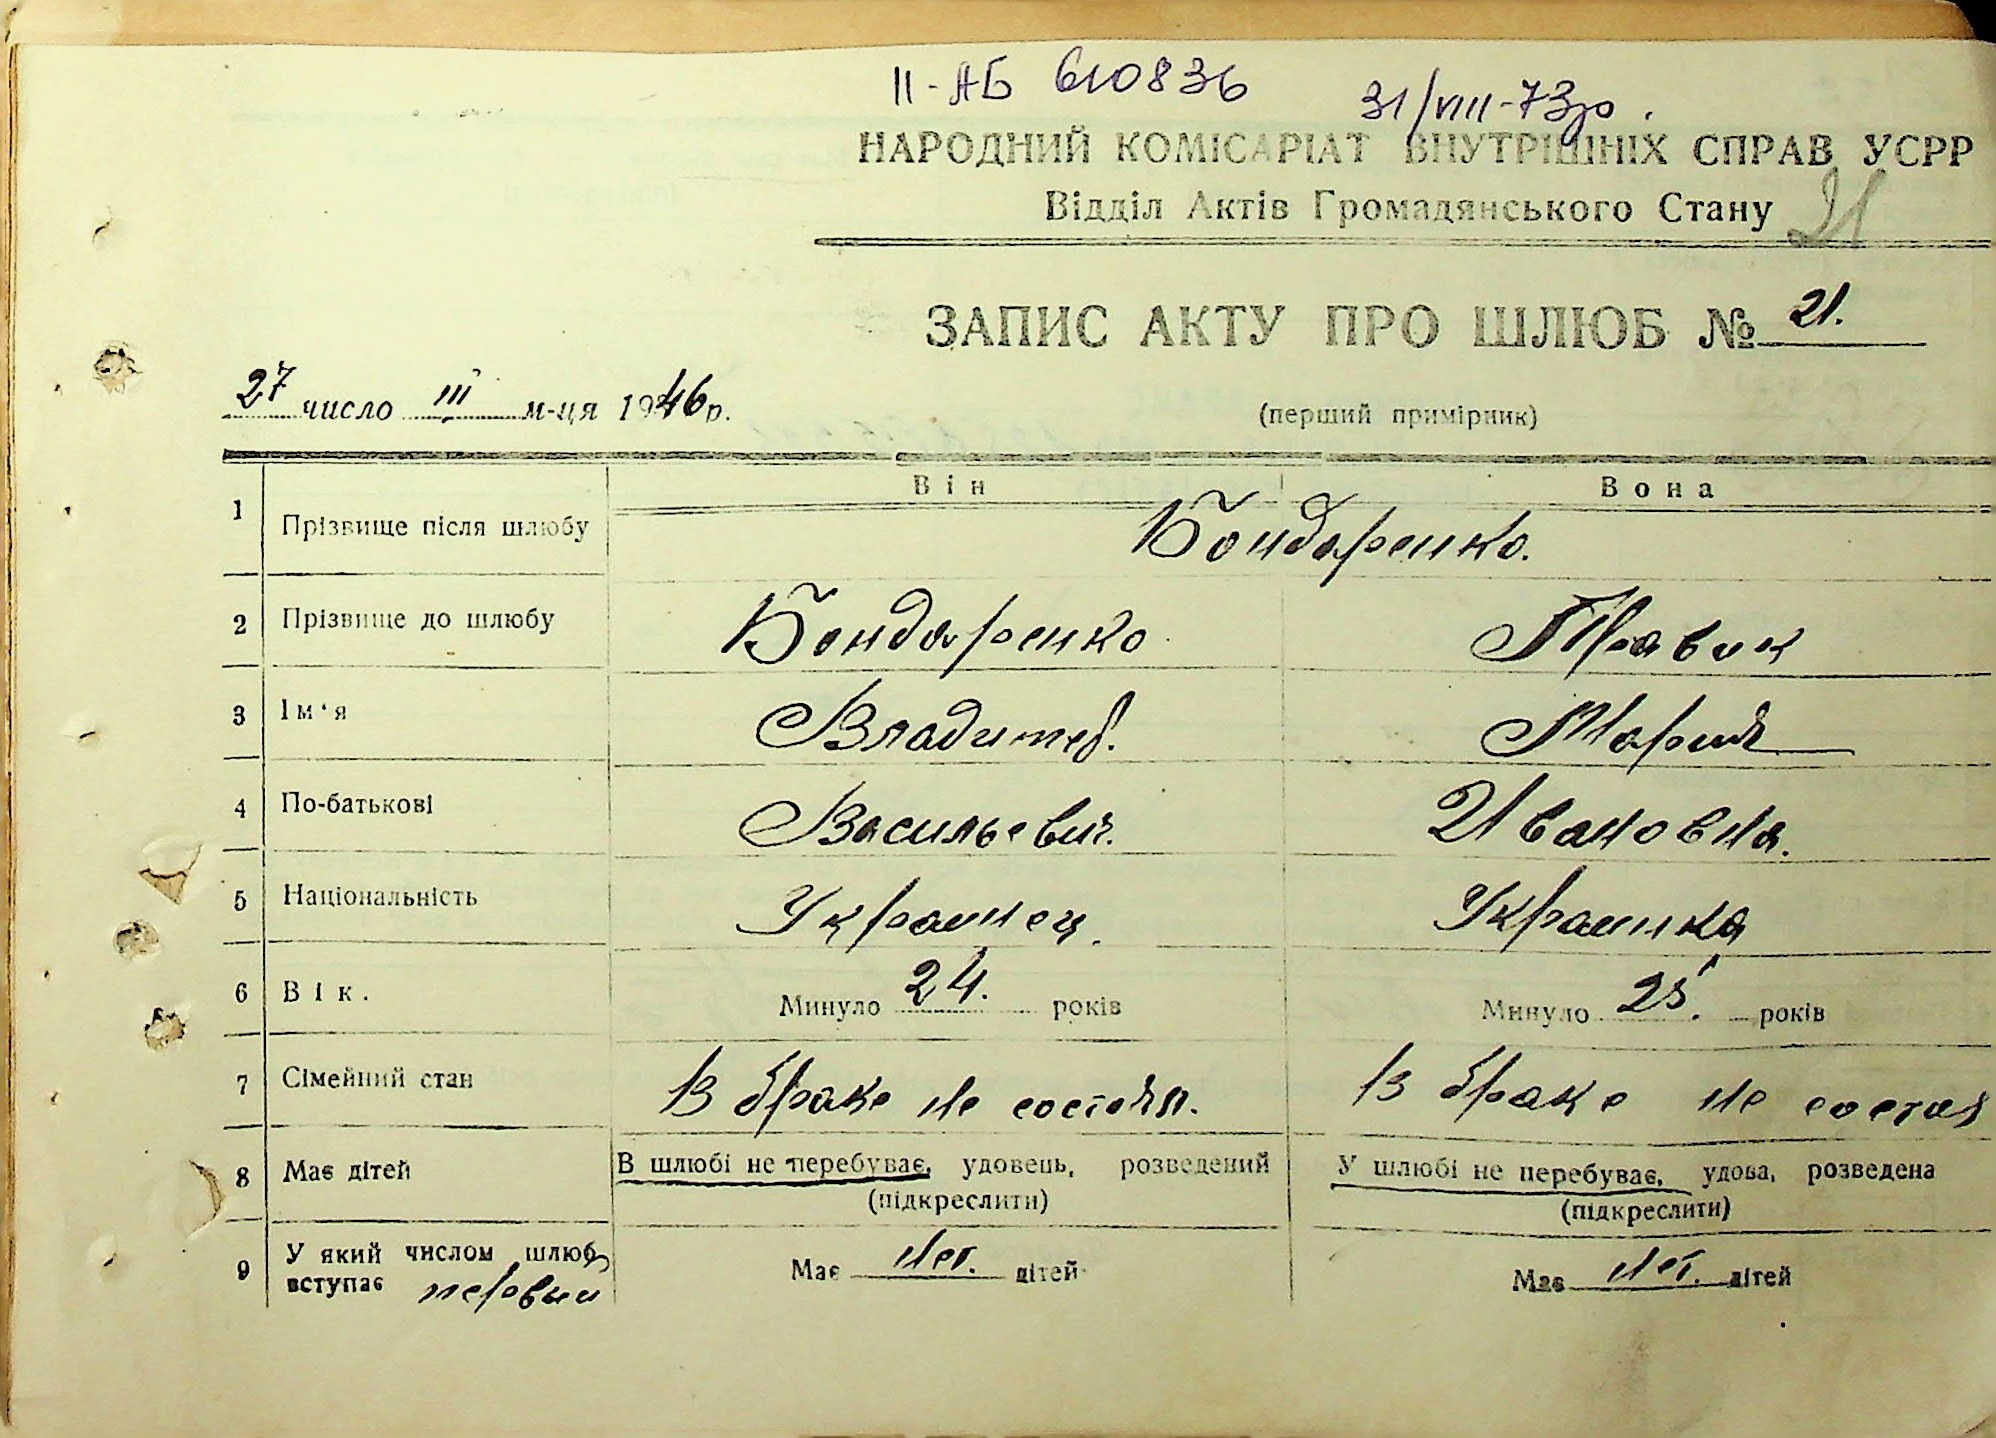 II-АБ 610836 31/VIII-73р.
НАРОДНИЙ КОМІСАРІАТ ВНУТРІШНІХ СПРАВ УСРР
Відділ Актів Громадянського Стану 21
ЗАПИС АКТУ ПРО ШЛЮБ № 21.
27 число III м-ця 1946 р. (перший примірник)
Він Вона
1 Прізвище після шлюбу Бондаренко.
2 Прізвище до шлюбу Бондаренко Правик
3 Ім'я Владимер. Мария
4 По-батькові Васильевич. Ивановна.
5 Національність Украинец. Украинка
6 Вік. Минуло 24. років Минуло 25. років
7 Сімейний стан В браке не состоял. В браке не состоя
8 Має дітей В шлюбі не перебуває, удовець, розведений У шлюбі не перебуває, удова, розведена
(підкреслити) (підкреслити)
9 У який числом шлюб вступає первый Має Нет. дітей Має Нет. дітей